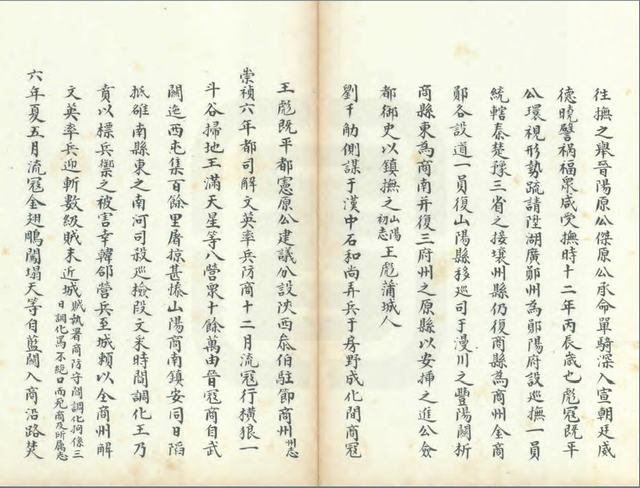 往撫之舉晉陽原公傑原公承命單騎深入宣朝廷威
德曉譬禍福衆咸受撫時十二年丙辰歲也彪冦既平
公環視形勢疏請陞湖廣鄖州為鄖陽府設巡撫一員
統轄秦楚豫三省之接壤州縣仍復商縣為商州全商
鄖各設道一員復山陽縣移巡司于漫川之豐陽關析
商縣東為商南并復三府州之原縣以安揷之進公僉
都御史以鎮撫之山陽初志王彪蒲城人
劉千觔側謀于漢中石和尚弄兵于房野成化間商冦
王彪既平都憲原公建議分設陝西叅伯駐節商州州志
崇禎六年都司解文英率兵防商十二月流冦行橫狼一
斗谷掃地王滿天星等八營衆十餘萬由晉冦商自武
關迤西屯集百餘里屠掠甚慘山陽商南鎮安同日陷
抵雒南縣東之南河司殺巡檢段文來時閻調化王乃
賁以標兵禦之被害幸韓郃營兵至城頼以全商州解
文英率兵迎斬數級賊未近城賊執署商防守閻調化拘係三日調化罵不絕口而死商及所属志
六年夏五月流冦金翅鵬闖塌天等自藍關入商沿路焚